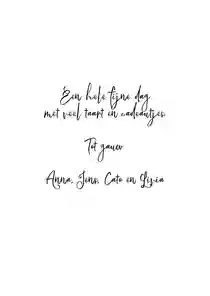 Een hele fijne dag
met veel taart en cadeautjes
Tot gauw
Anna, Jens, Cato en Livia